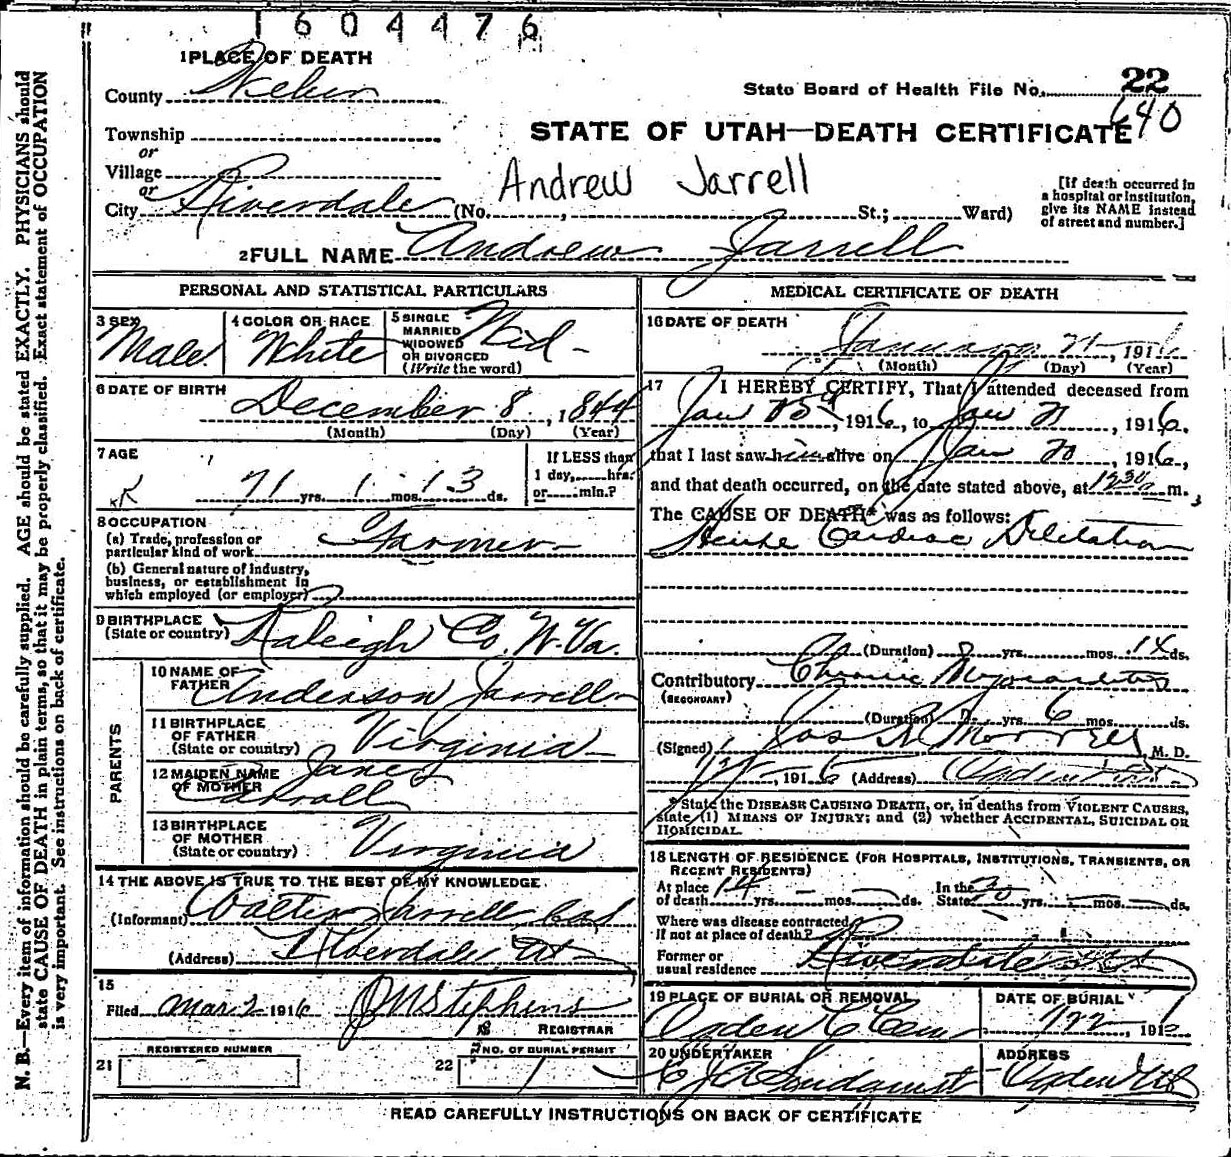 1604476
1 PLACE OF DEATH
County Weber
State Board of Health File No. 22
640
Township
or
STATE OF UTAH—DEATH CERTIFICATE
Village
or
Andrew Jarrell
City Riverdale (No. , St.; Ward)
[If death occurred in
a hospital or institution,
give its NAME instead
of street and number.]
2 FULL NAME Andrew Jarrell
PERSONAL AND STATISTICAL PARTICULARS
3 SEX
Male
4 COLOR OR RACE
White
5 SINGLE
MARRIED
WIDOWED
OR DIVORCED
(Write the word)
Wid
6 DATE OF BIRTH
December 8, 1844
(Month) (Day) (Year)
7 AGE
71 yrs. 1 mos. 13 ds.
If LESS than
1 day, hrs.
or min.?
8 OCCUPATION
(a) Trade, profession or
particular kind of work Farmer
(b) General nature of industry,
business, or establishment in
which employed (or employer)
9 BIRTHPLACE
(State or country) Raleigh Co. W. Va.
PARENTS
10 NAME OF
FATHER Anderson Jarrell
11 BIRTHPLACE
OF FATHER
(State or country) Virginia
12 MAIDEN NAME
OF MOTHER
13 BIRTHPLACE
OF MOTHER
(State or country) Virginia
14 THE ABOVE IS TRUE TO THE BEST OF MY KNOWLEDGE
(Informant) Walter Jarrell
(Address) Riverdale Ut
15
Filed Mar 2 1916 J M Stephens
REGISTRAR
REGISTERED NUMBER
21
22 NO. OF BURIAL PERMIT
MEDICAL CERTIFICATE OF DEATH
16 DATE OF DEATH
January 21, 1916
(Month) (Day) (Year)
17 I HEREBY CERTIFY, That I attended deceased from
Jan, 1916, to Jan 21, 1916,
that I last saw him alive on Jan 20, 1916,
and that death occurred, on the date stated above, at 12 30 m.
The CAUSE OF DEATH* was as follows:
Cardiac Diletation
(Duration) yrs. mos. 14 ds.
Contributory Chronic Myocarditis
(SECONDARY)
(Duration) yrs. 6 mos. ds.
(Signed) Jos R Morrell M. D.
, 1916 (Address) Ogden
* State the DISEASE CAUSING DEATH, or, in deaths from VIOLENT CAUSES,
state (1) MEANS OF INJURY; and (2) whether ACCIDENTAL, SUICIDAL OR
HOMICIDAL.
18 LENGTH OF RESIDENCE (FOR HOSPITALS, INSTITUTIONS, TRANSIENTS, OR
RECENT RESIDENTS)
At place
of death 14 yrs. mos. ds.
In the
State 30 yrs. mos. ds.
Where was disease contracted
If not at place of death?
Former or
usual residence Riverdale
19 PLACE OF BURIAL OR REMOVAL
Ogden C Cem
DATE OF BURIAL
1/22, 1916
20 UNDERTAKER
ADDRESS
Ogden Utah
READ CAREFULLY INSTRUCTIONS ON BACK OF CERTIFICATE
N. B.—Every item of information should be carefully supplied. AGE should be stated EXACTLY. PHYSICIANS should
state CAUSE OF DEATH in plain terms, so that it may be properly classified. Exact statement of OCCUPATION
is very important. See instructions on back of certificate.